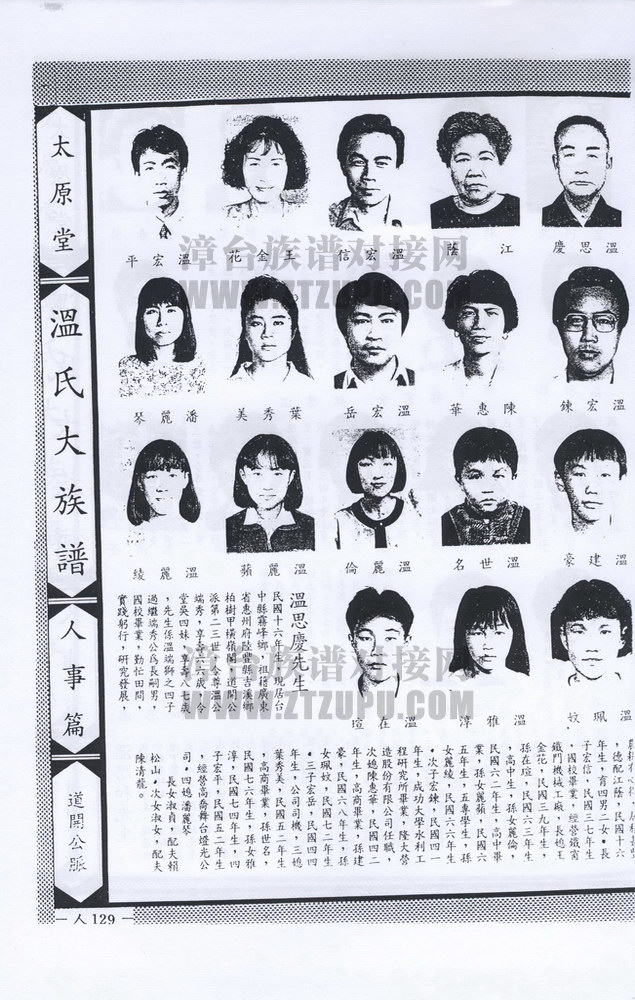 太原堂
溫氏大族譜
人事篇
道開公脈
溫思慶
江蔭
溫宏信
王金花
溫宏平
溫宏鍊
陳惠華
溫宏岳
葉秀美
潘麗琴
溫建豪
溫世名
溫麗倫
溫麗蘋
溫麗綾
溫珮妏
溫雅淳
溫在瑄
溫思慶先生
民國十六年生，現居台
中縣霧峰鄉，祖籍廣東
省惠州府陸豐縣吉溪鄉
柏樹甲橫嶺闊，道開公
派第二三世。令尊溫公
端秀，享壽五六歲，令
堂吳四妹，享壽八七歲
，先生係溫端獅之四子
過繼端秀公為長嗣男，
國校畢業，勤忙田間，
實踐躬行，研究發展，
，德配江蔭，民國十六
年生，育四男二女。長
子宏信，民國三七年生
，國校畢業，經營鐵窗
鐵門機械工廠，長媳王
金花，民國三九年生，
孫在瑄，民國六三年生
，高中生，孫女麗倫，
民國六二年生，高中畢
業，孫女麗蘋，民國六
五年生，五專學生，孫
女麗綾，民國六六年生
。次子宏鍊，民國四一
年生，成功大學水利工
程研究所畢業，隆大營
造股份有限公司任職，
次媳陳惠華，民國四二
年生，高商畢業，孫建
豪，民國六八年生，孫
女珮妏，民國七二年生
。三子宏岳，民國四四
年生，公司司機，三媳
葉秀美，民國五二年生
，高商畢業，孫世名，
民國七六年生，孫女雅
淳，民國七四年生，四
子宏平，民國五二年生
，經營高喬舞台燈光公
司。四媳潘麗琴
長女淑貞，配夫賴
松山。次女淑女，配夫
陳清龍。
人129
漳台族谱对接网
WWW.ZTZUPU.COM
漳台族谱对接网
WWW.ZTZUPU.COM